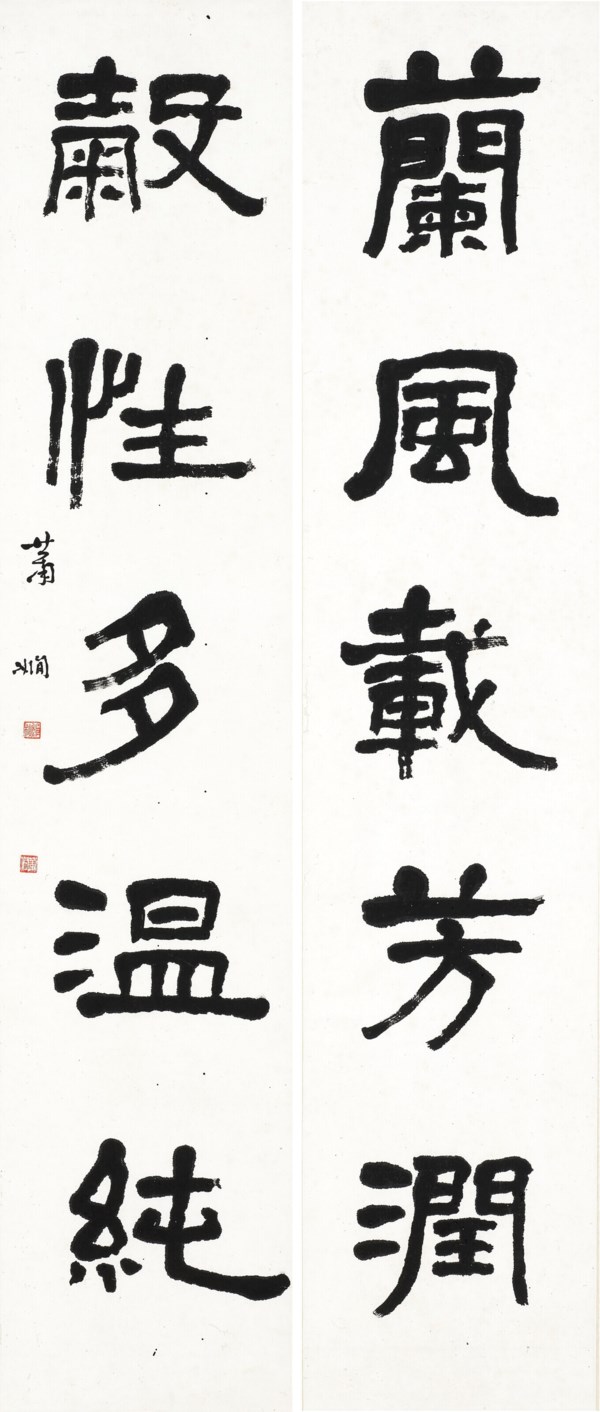 蘭風載芳潤
穀性多温純
蕭嫻